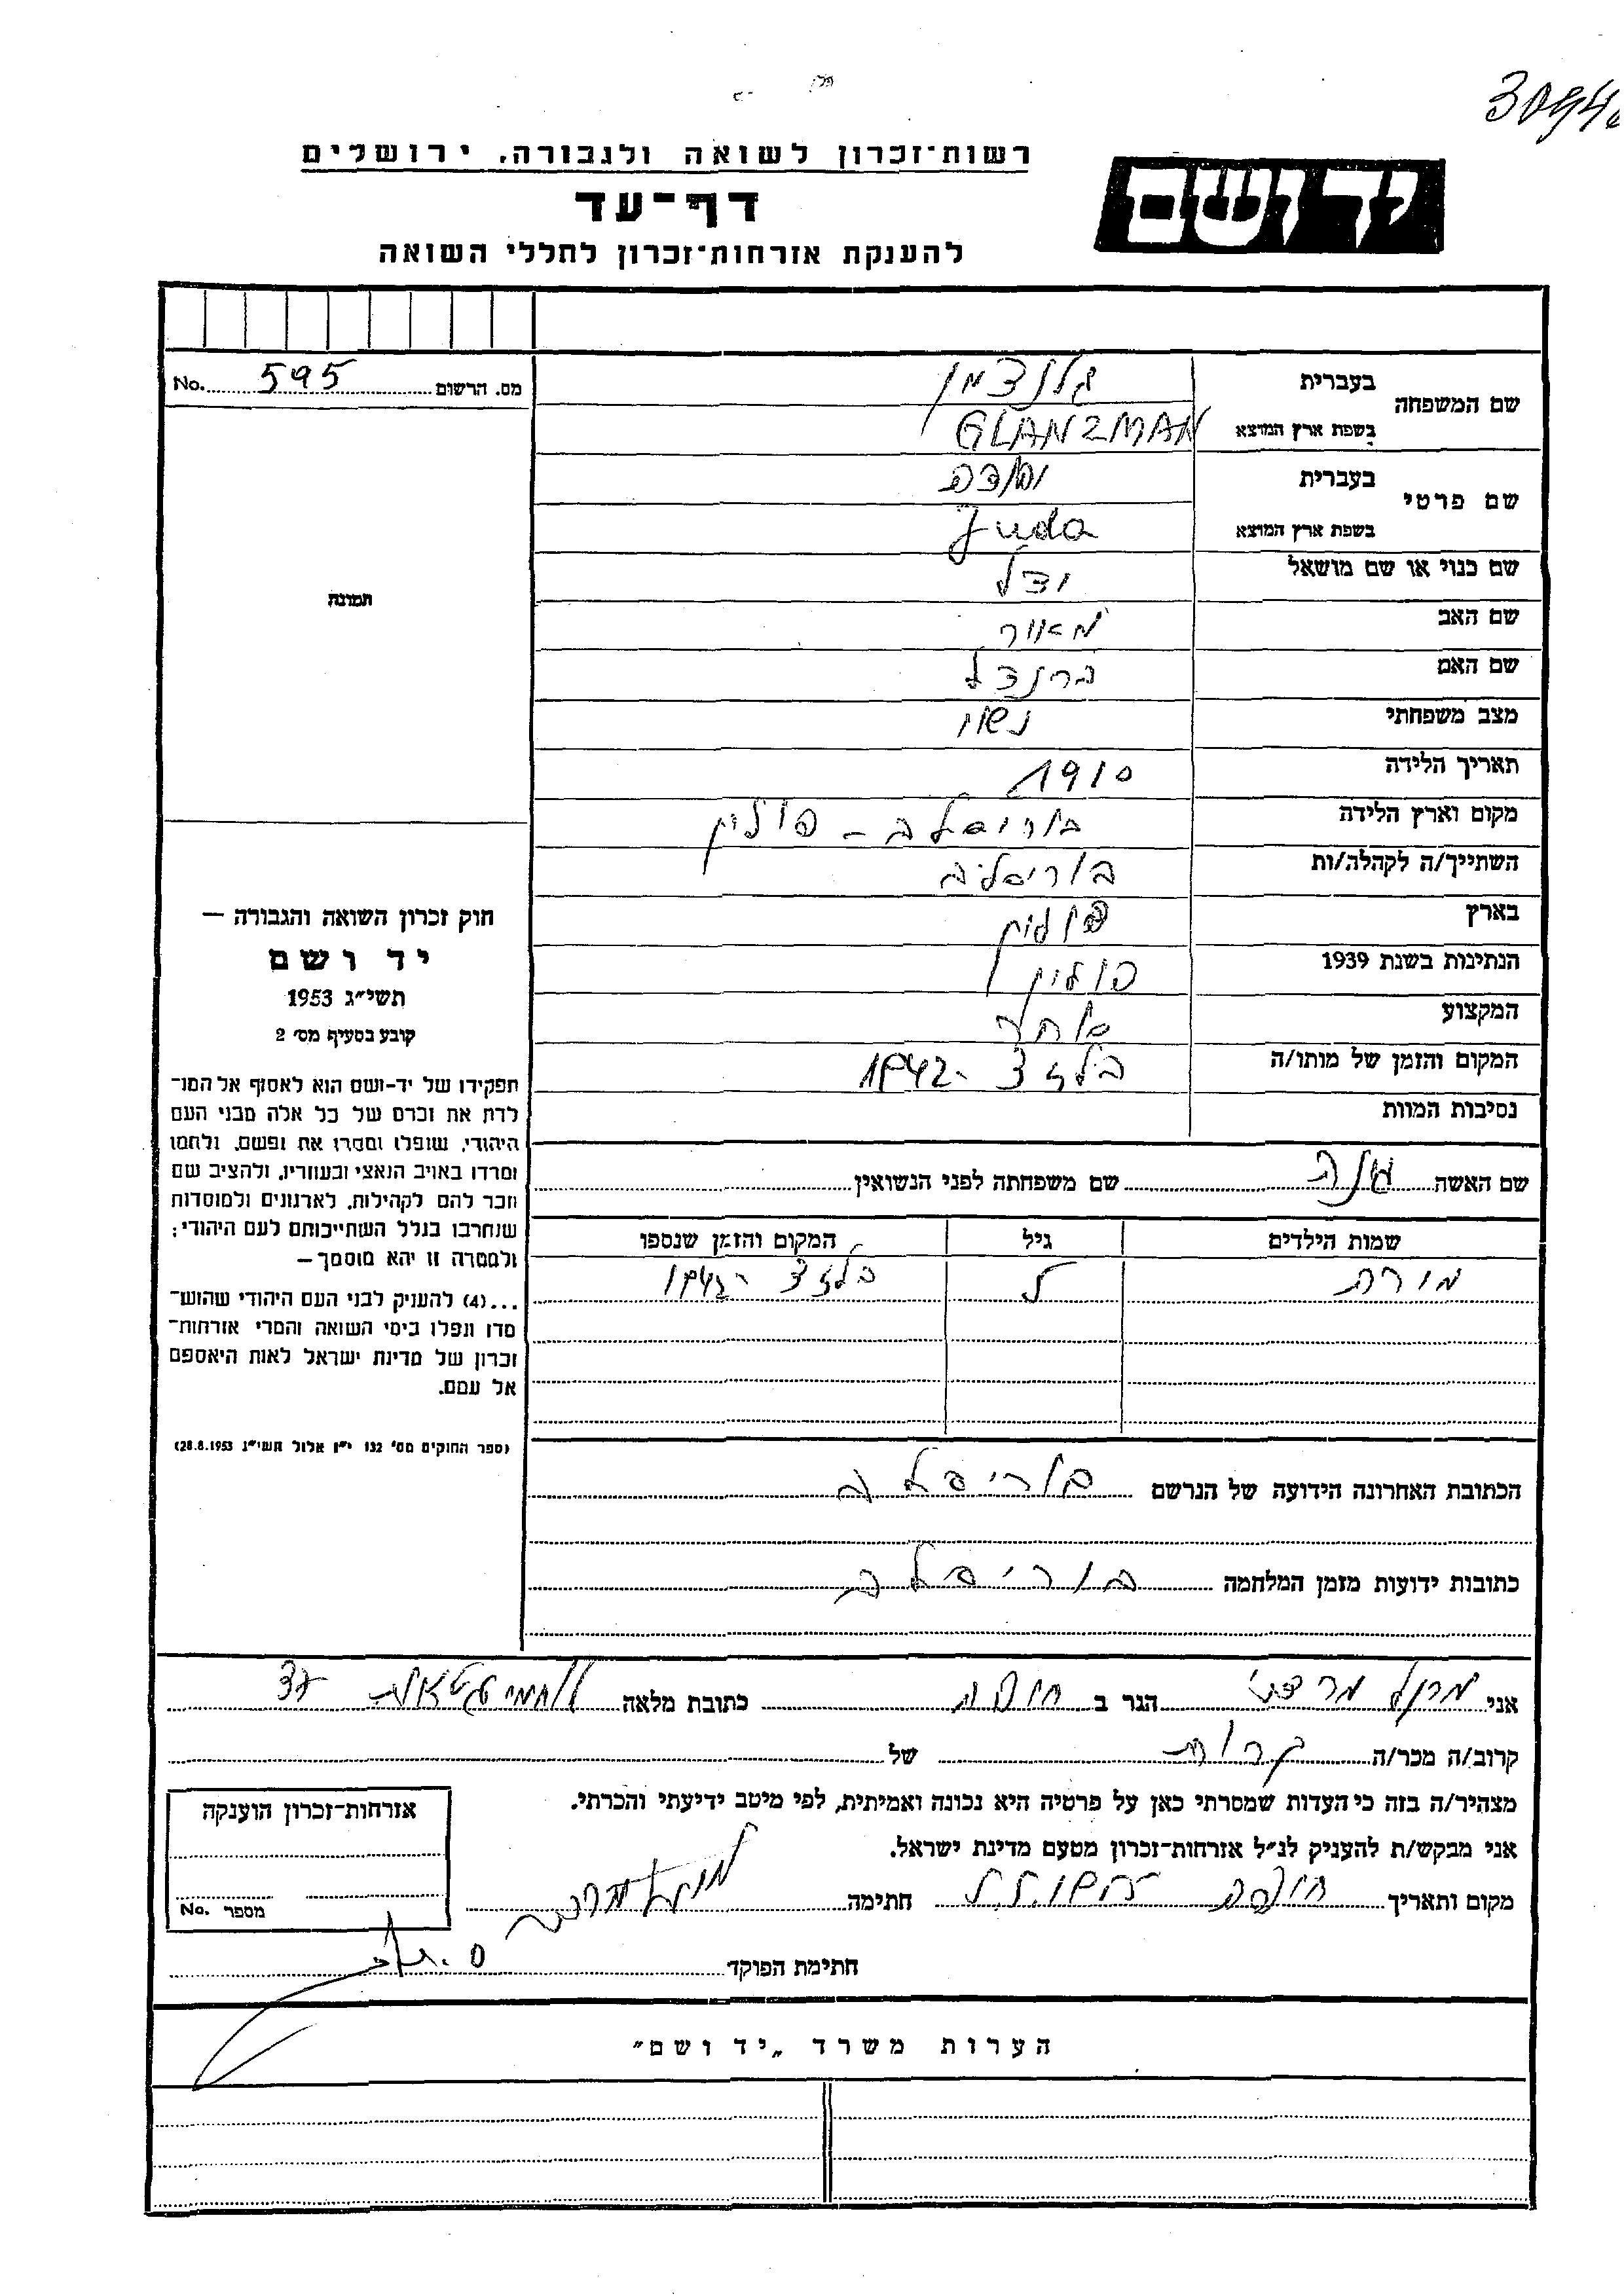 רשות־זכרון לשואה ולגבורה, ירושלים
יד ושם
דף־עד
להענקת אזרחות־זכרון לחללי השואה
מס. הרשום 595 No.
שם המשפחה
בעברית גלנצמן
בשפת ארץ המוצא GLANZMAN
שם פרטי
בעברית יהודה
בשפת ארץ המוצא Juda
שם כנוי או שם מושאל
שם האב מאיר
שם האם ברנדל
מצב משפחתי נשוי
תאריך הלידה 1910
מקום וארץ הלידה בוריסלב - פולין
השתייך/ה לקהלה/ות בוריסלב
בארץ פולין
הנתינות בשנת 1939 פולין
המקצוע סוחר
המקום והזמן של מותו/ה בלזץ 1942
נסיבות המוות
שם האשה שם משפחתה לפני הנשואין
שמות הילדים גיל המקום והזמן שנספו
בלזץ 1942
הכתובת האחרונה הידועה של הנרשם בוריסלב
כתובות ידועות מזמן המלחמה בוריסלב
תמונה
חוק זכרון השואה והגבורה —
יד ושם
תשי״ג 1953
קובע בסעיף מס׳ 2
תפקידו של יד-ושם הוא לאסוף אל המו־
לדת את זכרם של כל אלה מבני העם
היהודי, שנפלו ומסרו את נפשם, נלחמו
ומרדו באויב הנאצי ובעוזריו, ולהציב שם
וזכר להם לקהילות, לארגונים ולמוסדות
שנחרבו בגלל השתייכותם לעם היהודי;
ולמטרה זו יהא מוסמך—
...(4) להעניק לבני העם היהודי שהוש־
מדו ונפלו בימי השואה והמרי אזרחות־
זכרון של מדינת ישראל לאות היאספם
אל עמם.
(ספר החוקים מס׳ 132 י״ז אלול תשי״ג 28.8.1953)
אני הגר ב חיפה כתובת מלאה לוחמי הגיטאות
קרוב/ה מכר/ה של
מצהיר/ה בזה כי העדות שמסרתי כאן על פרטיה היא נכונה ואמיתית, לפי מיטב ידיעתי והכרתי.
אני מבקש/ת להעניק לנ״ל אזרחות־זכרון מטעם מדינת ישראל.
מקום ותאריך חיפה חתימה
אזרחות־זכרון הוענקה
מספר No.
חתימת הפוקד
הערות משרד „יד ושם״